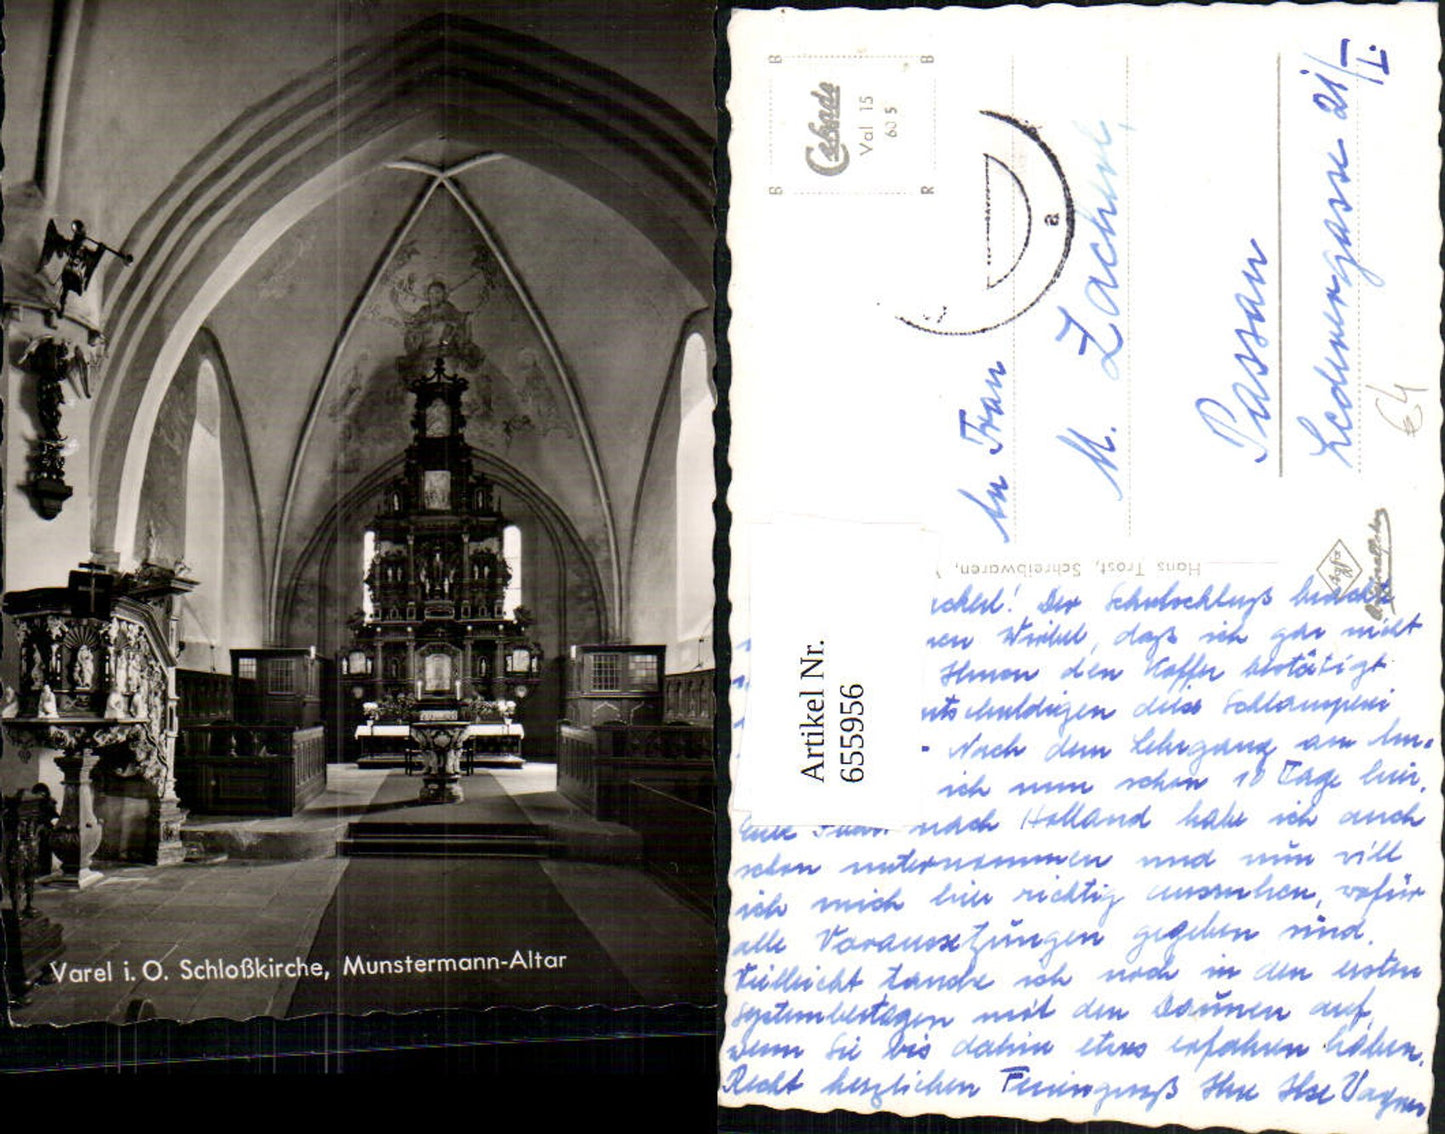 Varel i. O. Schloßkirche, Munstermann-Altar
B B
Cekade
Val 15
60 5
B R
a
An Frau
M. Zacherl,
Passau
Lederergasse 21/I
II.
€ 4
Hans Trost, Schreibwaren,
Agfa
Originalfoto
Artikel Nr.
6559956
acherl! Der Schulschluß brachte
nen Wirbel, daß ich gar nicht
Ihnen den Koffer bestätigt
entschuldigen diese Schlamperei
- Nach dem Lehrgang am
ich nun schon 10 Tage hier.
Eine nach Holland habe ich auch
schon unternommen und nun will
ich mich hier richtig ausruhen, wofür
alle Voraussetzungen gegeben sind.
Vielleicht tauche ich noch in den ersten
Septembertagen mit den auf,
wenn Sie bis dahin etwas erfahren haben.
Recht herzlichen Feriengruß Ihre Ilse Wagner